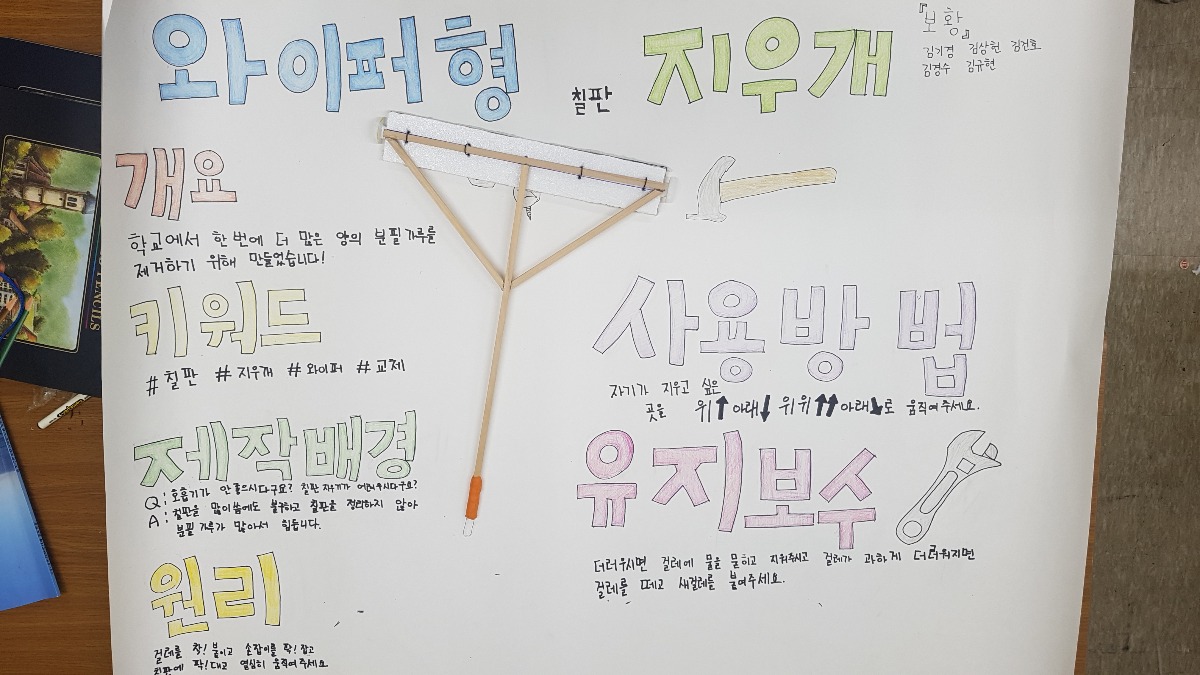 와이퍼형 칠판 지우개
『보황』
김기경 김상헌 김건호
김경수 김규현
개요
학교에서 한번에 더 많은 양의 분필가루를
제거하기 위해 만들었습니다!
키워드
#칠판 #지우개 #와이퍼 #교체
제작배경
Q: 호흡기가 안좋으시다구요? 칠판 지우기가 어려우시다구요?
A: 칠판을 많이씀에도 불구하고 칠판을 정리하지 않아
분필가루가 많아서 힘듭니다.
원리
걸레를 착! 붙이고 손잡이를 꽉! 잡고
칠판에 착! 대고 열심히 움직여주세요
사용방법
자기가 지우고 싶은
곳을 위⬆아래⬇ 위위⬆⬆아래⬇로 움직여주세요.
유지보수
더러우시면 걸레에 물을 묻히고 지워주시고 걸레가 과하게 더러워지면
걸레를 떼고 새걸레를 붙여주세요.
ENCILS